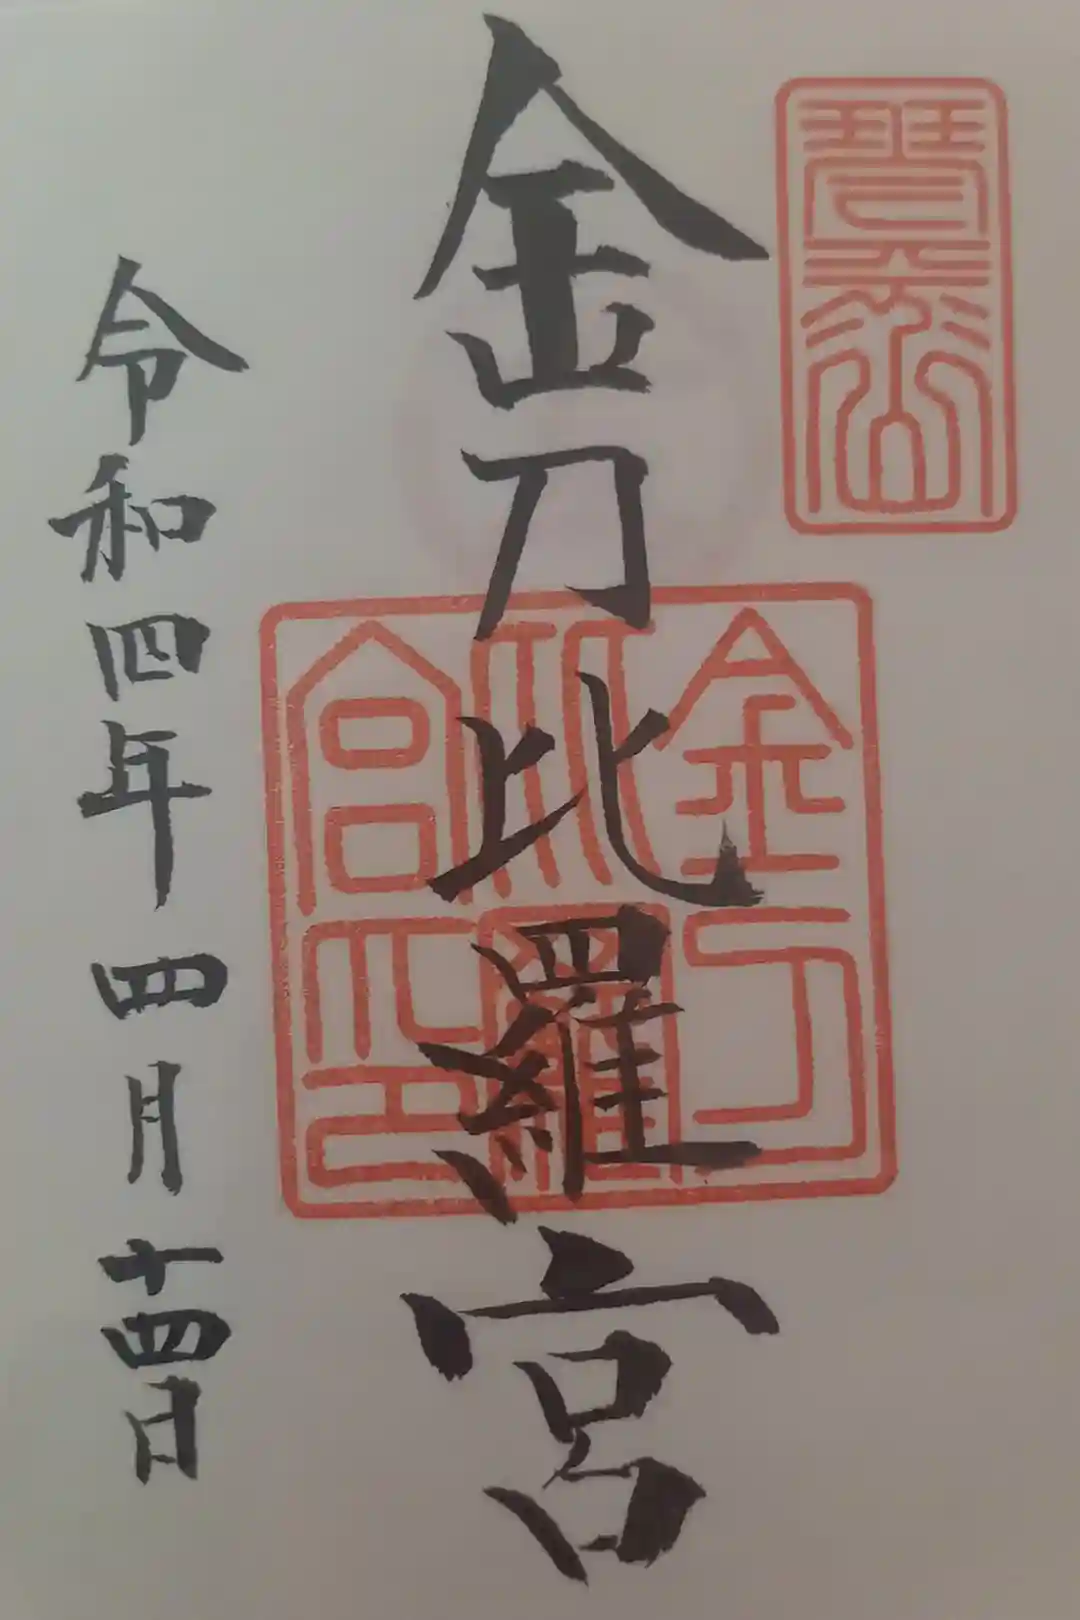 琴平山
金刀比羅宮
金刀
比羅
宮印
令和四年四月十四日